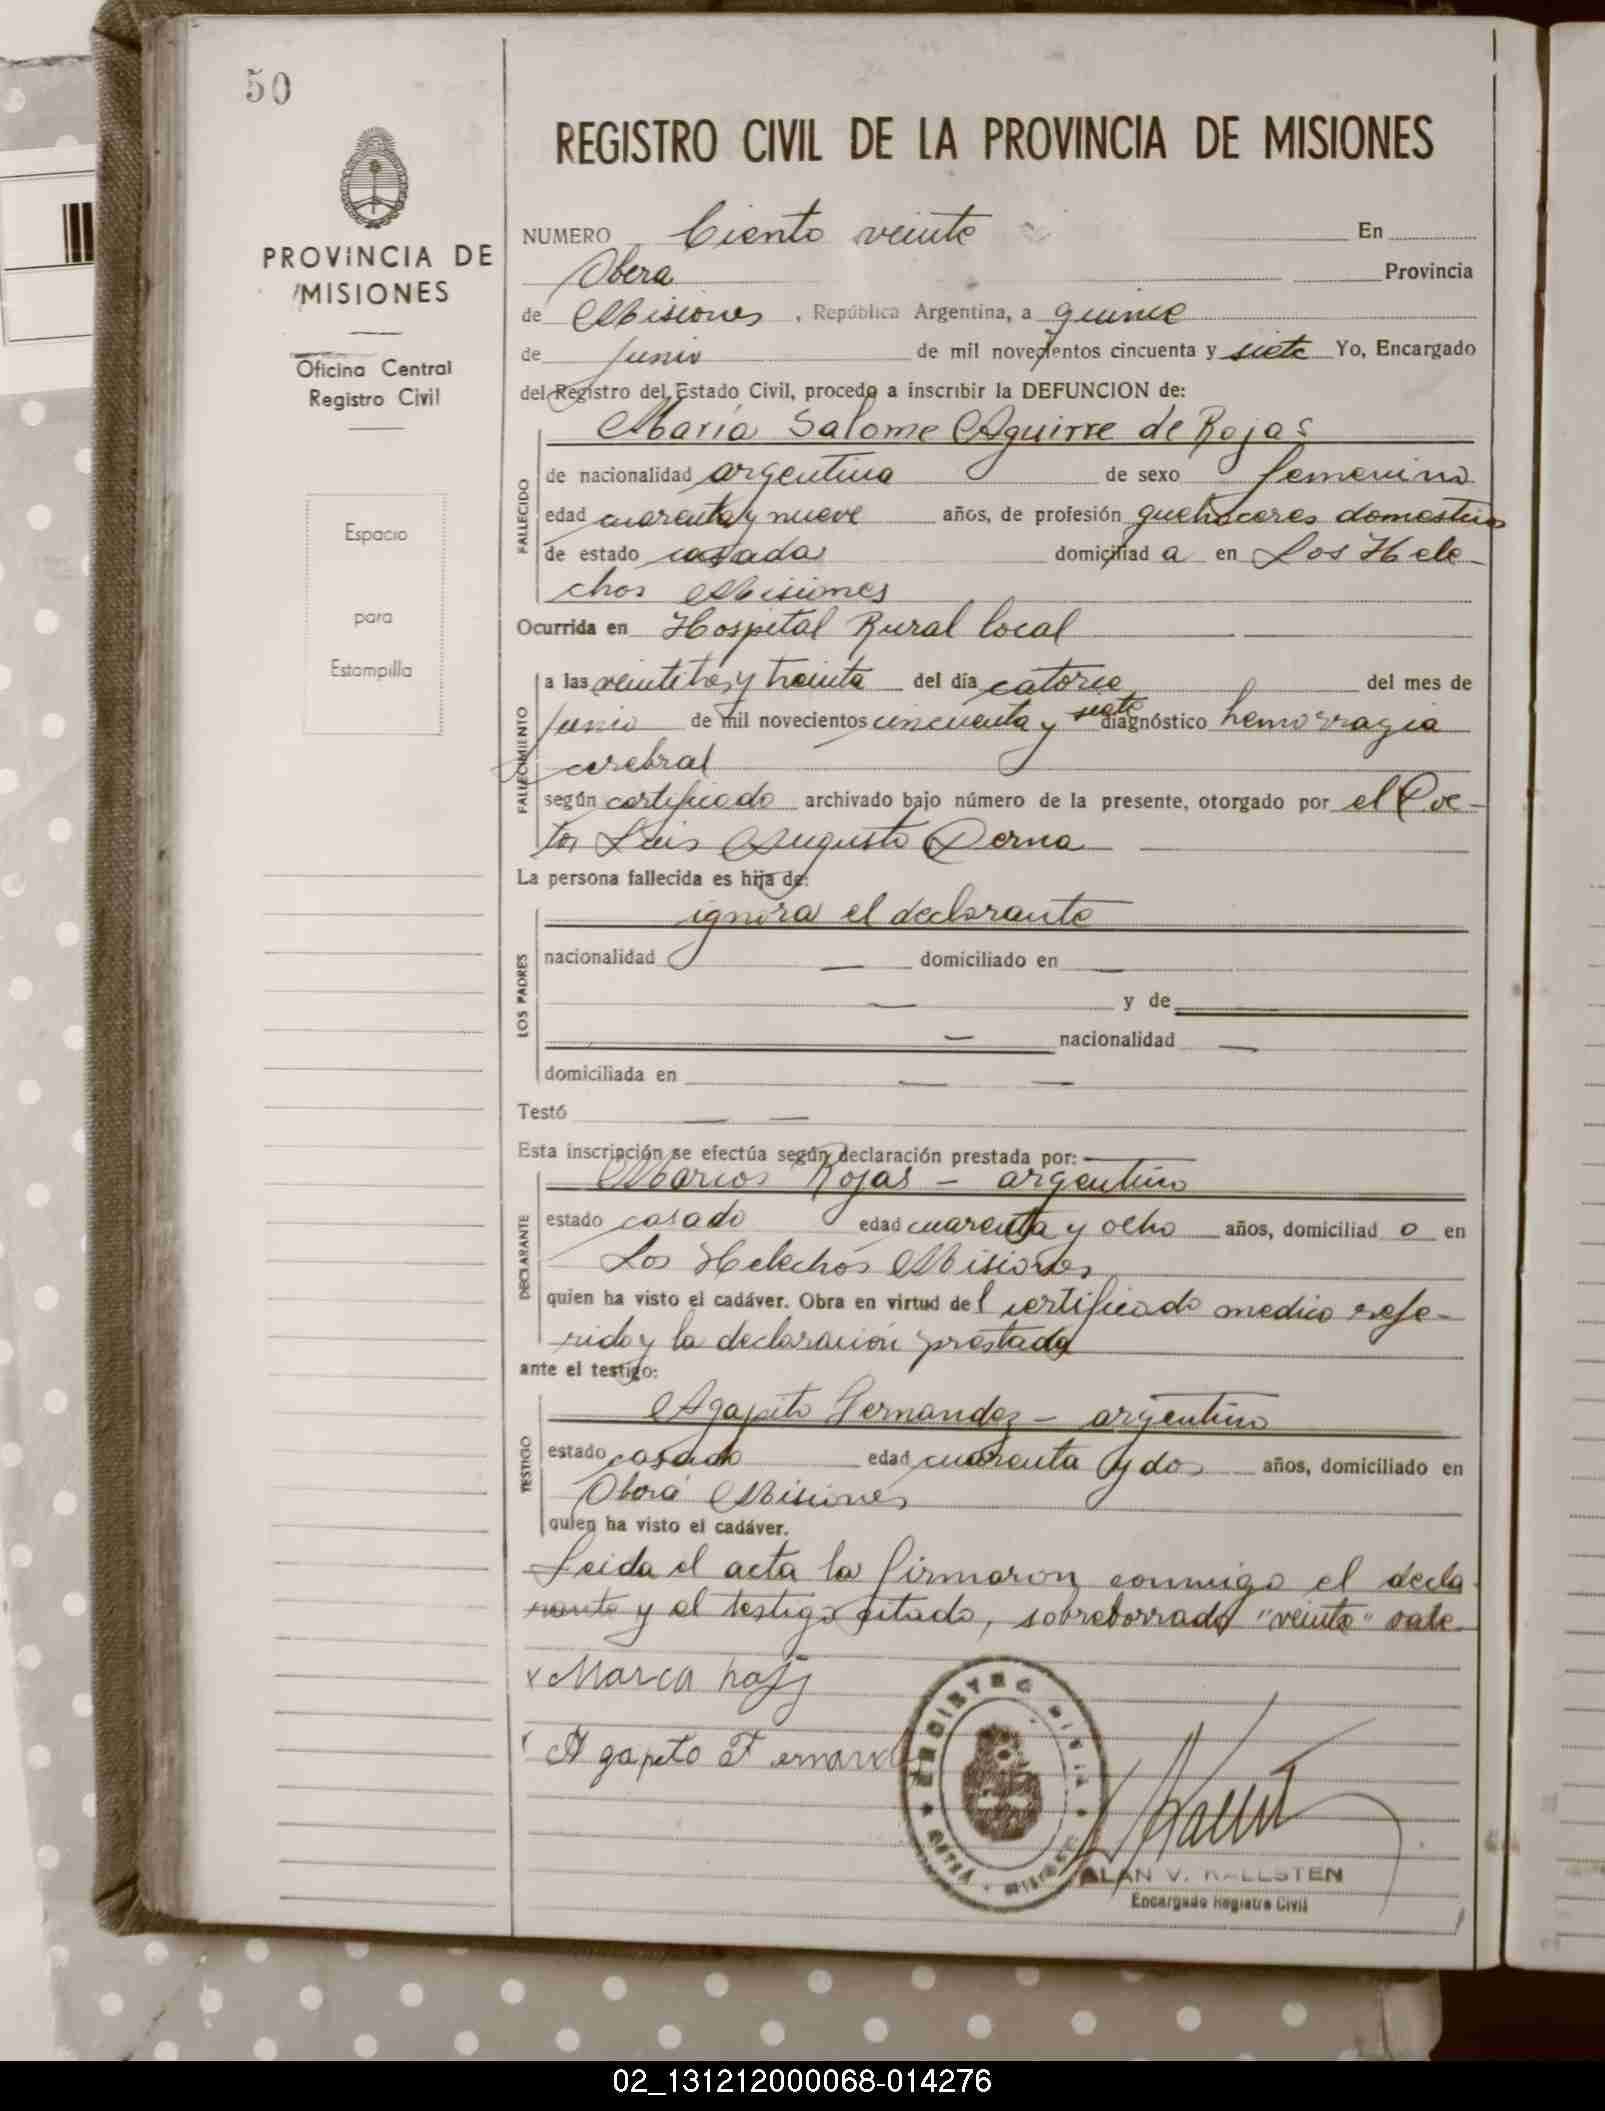 50
PROVINCIA DE
MISIONES
Oficina Central
Registro Civil
Espacio
para
Estampilla
REGISTRO CIVIL DE LA PROVINCIA DE MISIONES
NUMERO Ciento veinte En
Obera Provincia
de Misiones, República Argentina, a quince
de junio de mil novecientos cincuenta y siete Yo, Encargado
del Registro del Estado Civil, procedo a inscribir la DEFUNCION de:
Maria Salome Aguirre de Rojas
FALLECIDO
de nacionalidad argentina de sexo femenino
edad cuarenta y nueve años, de profesión quehaceres domesticos
de estado casada domiciliad a en Los Hele-
chos Misiones
Ocurrida en Hospital Rural local
FALLECIMIENTO
a las veintitres y treinta del día catorce del mes de
junio de mil novecientos cincuenta y siete diagnóstico hemorragia
cerebral
según certificado archivado bajo número de la presente, otorgado por el Doc-
tor Luis Augusto Derna
La persona fallecida es hija de:
LOS PADRES
ignora el declarante
nacionalidad — domiciliado en —
— y de
— nacionalidad —
domiciliada en — —
Testó — —
Esta inscripción se efectúa según declaración prestada por:
DECLARANTE
Marcos Rojas - argentino
estado casado edad cuarenta y ocho años, domiciliad o en
Los Helechos Misiones
quien ha visto el cadáver. Obra en virtud del certificado medico refe-
rido y la declaración prestada
ante el testigo:
TESTIGO
Agapito Fernandez - argentino
estado casado edad cuarenta y dos años, domiciliado en
Oberá Misiones
quien ha visto el cadáver.
Leida el acta la firmaron conmigo el decla-
rante y el testigo citado, sobreborrado "veinte" vale.
x Marca
Agapito Fernand
REGISTRO CIVIL
OBERÁ - MISIONES
ALAN V. KALLSTEN
Encargado Registro Civil
02_131212000068-014276